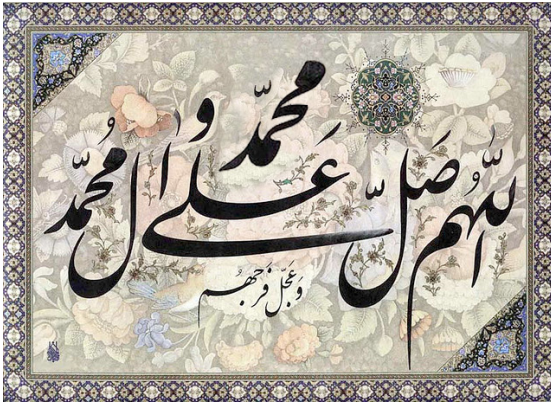 اللّهُم صَلِّ عَلی محمّد و آل مُحمّد
وَ عَجّل فرَجهُم